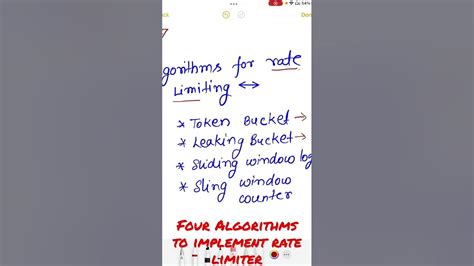 Done
gorithms for rate
Limiting ↔
* Token Bucket →
* Leaking Bucket →
* Sliding window log
* Sling window
counter
Four Algorithms
to implement rate
limiter